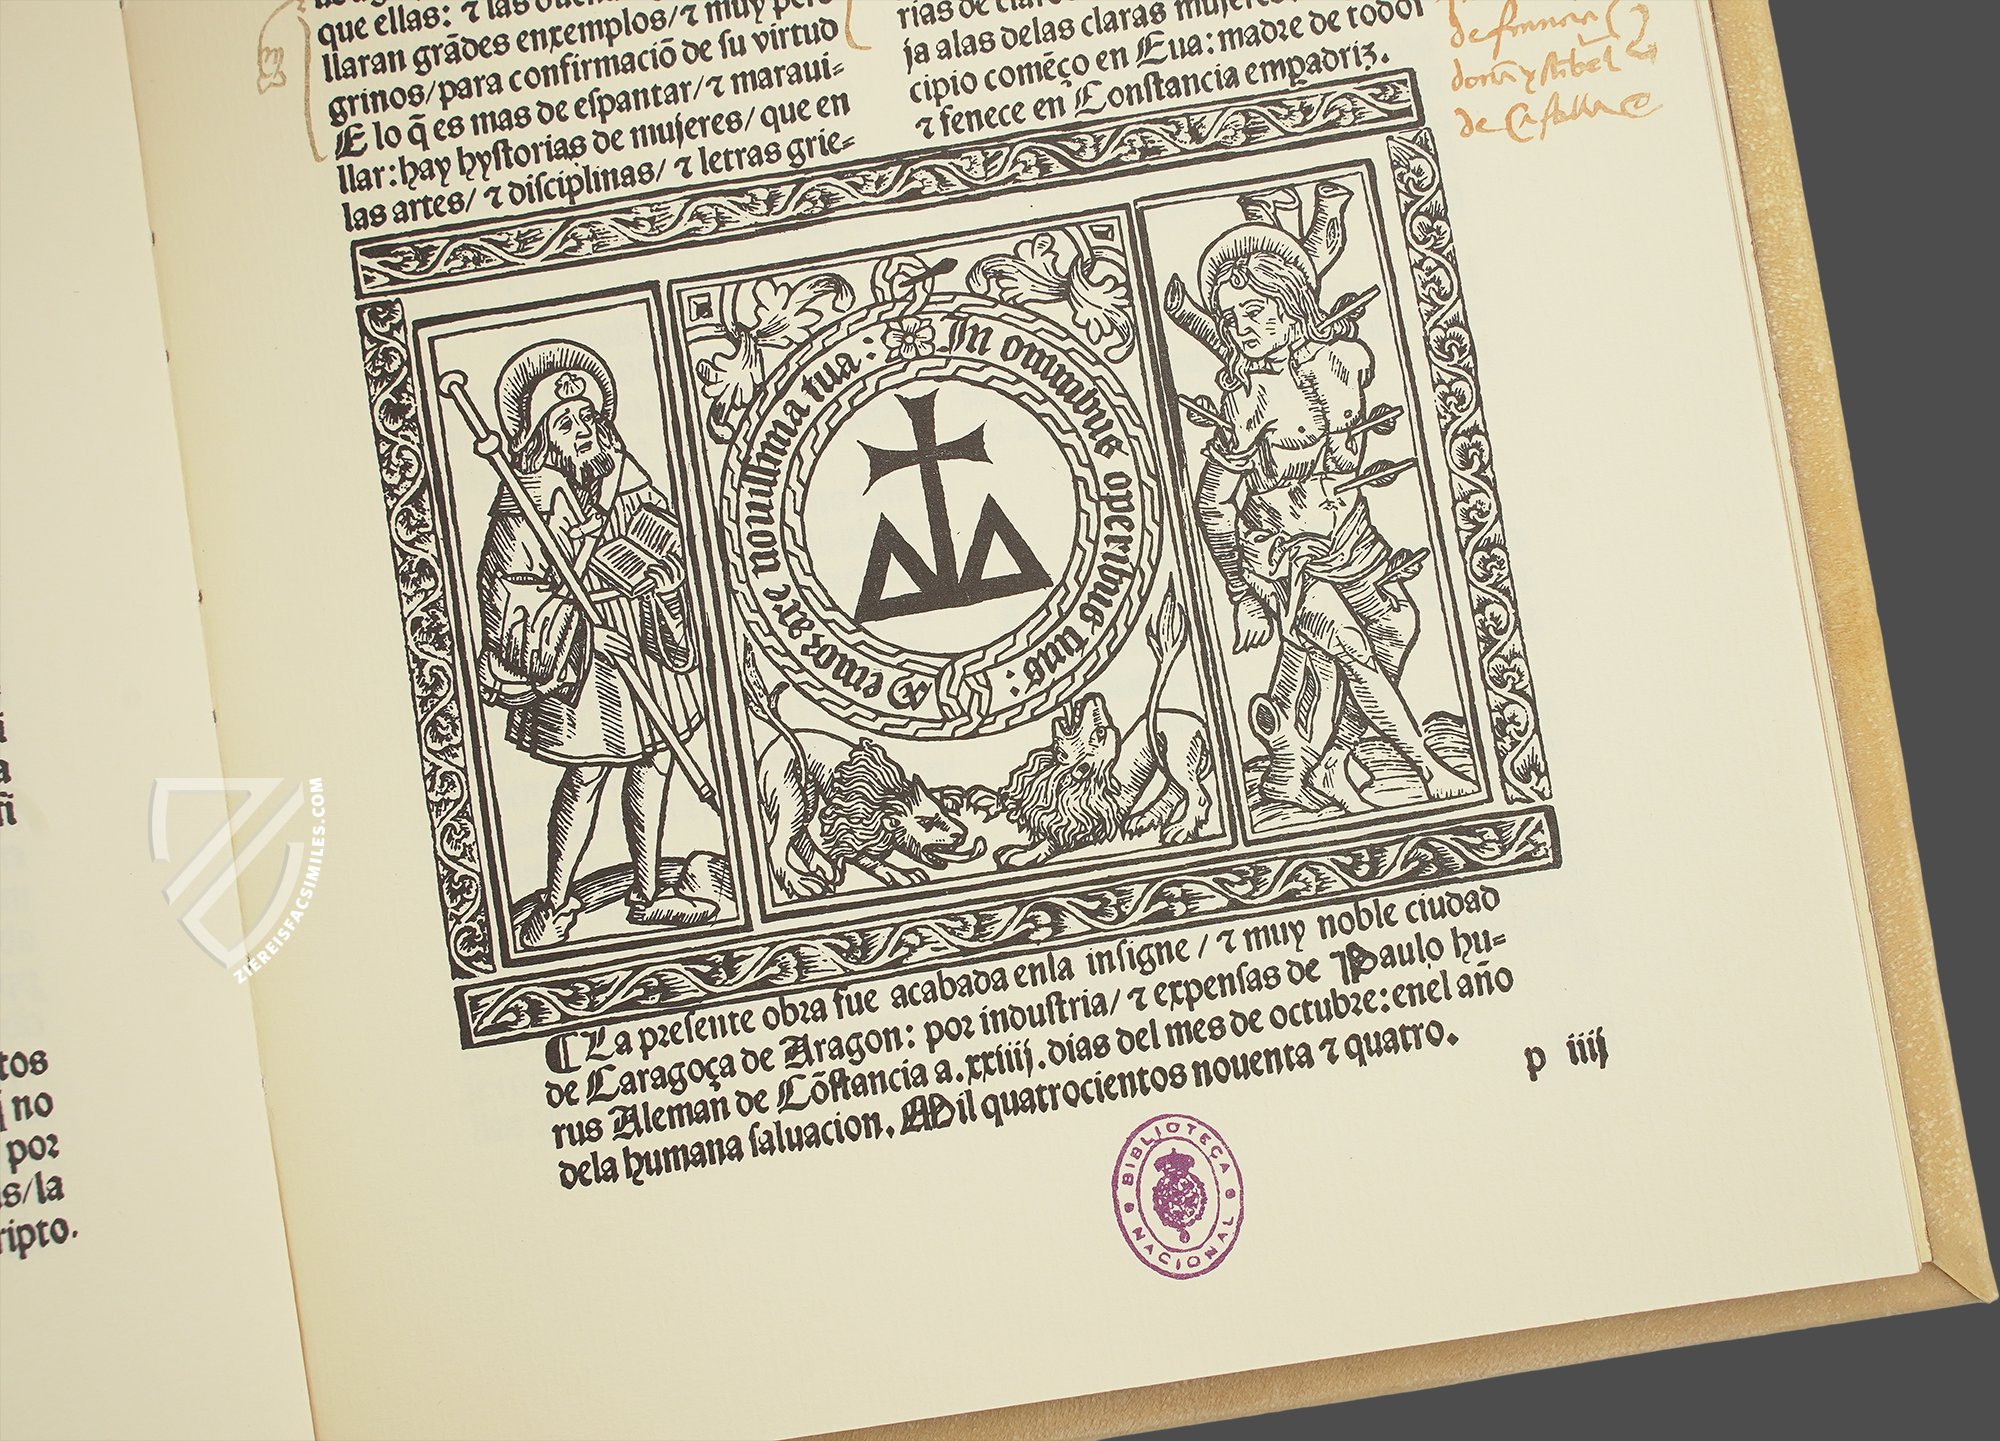 que ellas: ⁊ las
llaran grãdes enxemplos/⁊ muy
grinos/para confirmaciõ de su virtud
E lo q̃ es mas de espantar/⁊ maraui-
llar: hay hystorias de mujeres/ que en
las artes/ ⁊ disciplinas/ ⁊ letras grie-
rias de
ja alas delas claras mujeres
cipio comẽço en Eua: madre de todos
⁊ fenece en Constancia empadriz.
de Castella
In omnibus operibus tuis:
memorare nouissima tua:
ℂ La presente obra fue acabada enla insigne/ ⁊ muy noble ciudad
de Caragoça de Aragon: por industria/ ⁊ expensas de Paulo hu-
rus Aleman de Cõstancia a. xxiiij. dias del mes de octubre: enel año
dela humana saluacion. Mil quatrocientos nouenta ⁊ quatro.
p iiij
BIBLIOTECA NACIONAL
tos
no
por
s/la
ripto.
ZIEREISFACSIMILES.COM